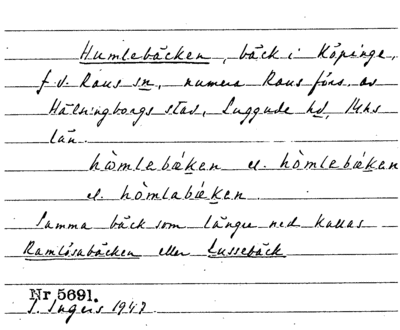 Humlebäcken, bäck i Köpinge,
f. d. Raus sn, numera Raus förs. av
Hälsingborgs stad, Luggude hd, Mhs
län.
hòmlebæken el. hòmlebæken
el. hòmlabæken.
Samma bäck som längre ned kallas
Ramlösabäcken eller Lussebäck
Nr 5691.
I. Ingers 1947